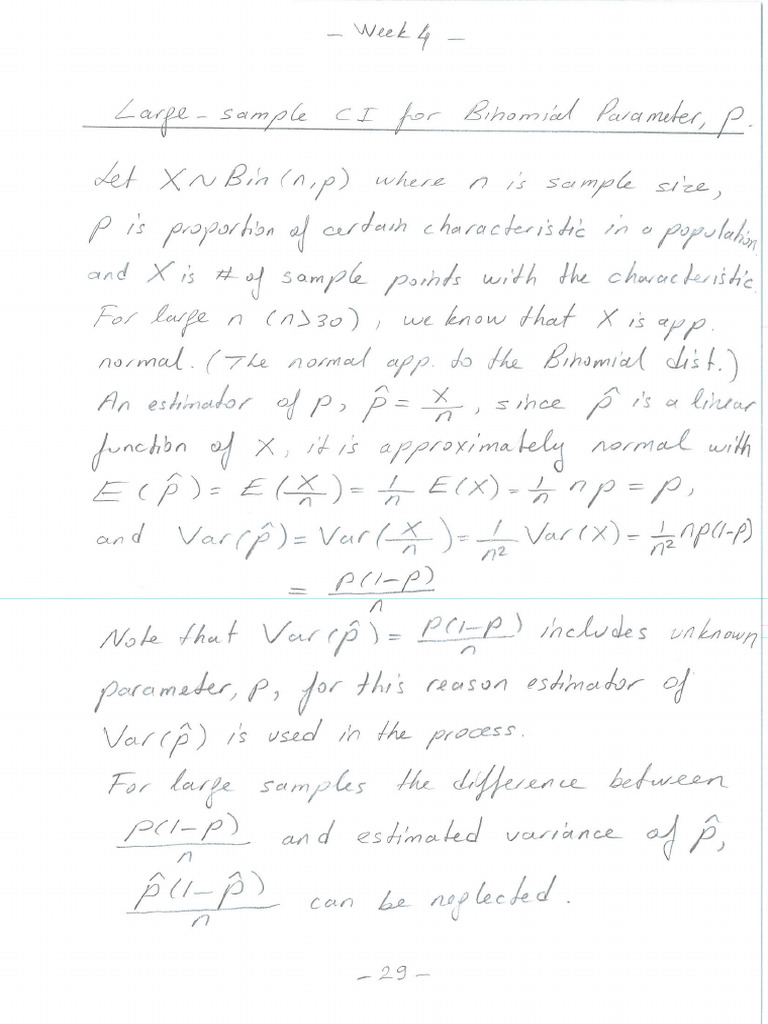 - Week 4 -
Large-sample CI for Binomial Parameter, p.
Let X~Bin(n,p) where n is sample size,
p is proportion of certain characteristic in a population
and X is # of sample points with the characteristic.
For large n (n>30), we know that X is app.
normal. (The normal app. to the Binomial dist.)
An estimator of p, p̂ = X/n, since p̂ is a linear
function of X, it is approximately normal with
E(p̂) = E(X/n) = 1/n E(X) = 1/n np = p,
and Var(p̂) = Var(X/n) = 1/n² Var(X) = 1/n² np(1-p)
= p(1-p)/n
Note that Var(p̂) = p(1-p)/n includes unknown
parameter, p, for this reason estimator of
Var(p̂) is used in the process.
For large samples the difference between
p(1-p)/n and estimated variance of p̂,
p̂(1-p̂)/n can be neglected.
- 29 -